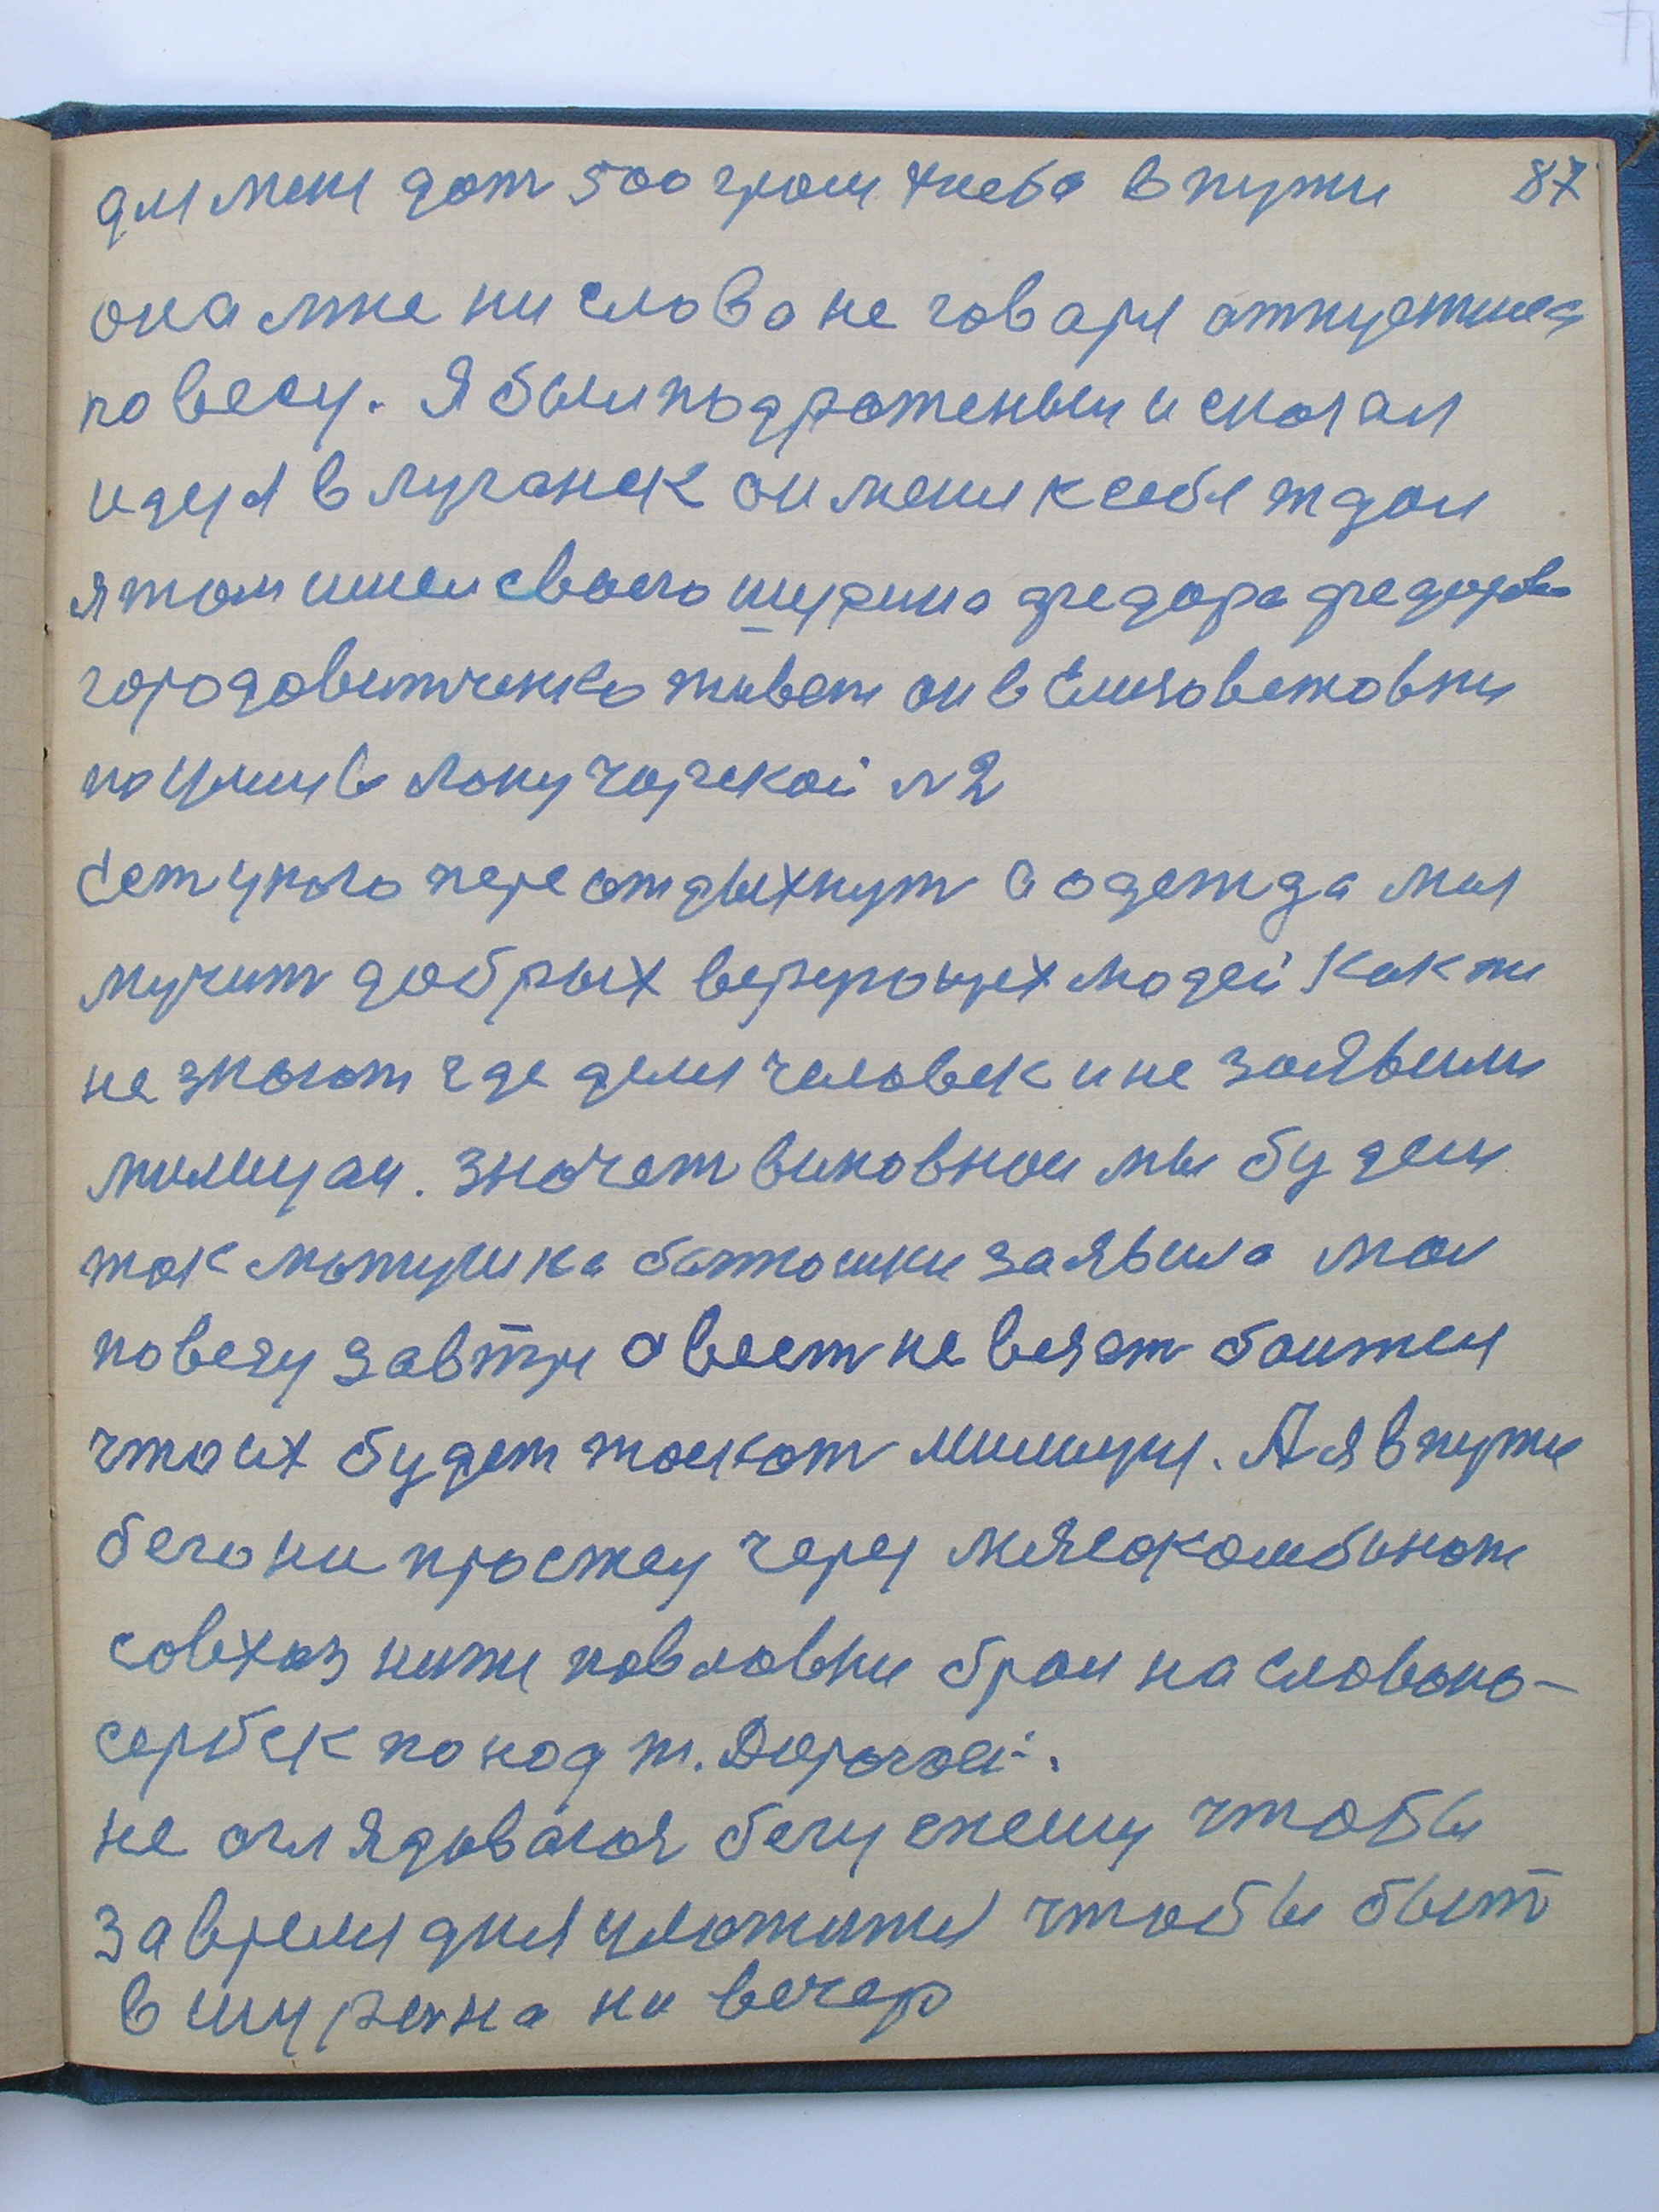 для меня дат 500 грам хлеба в пути 87
она мне ни слова не говаря атпустила
по весу. Я был подражен и сказал
иду я в луганск он меня к себе ждал
я там имел сваего шурина федора федорова
городовитченко живет он в Елизаветовки
по улице в луначарской №2
сет у кого переотдыхнут а одежда мая
мучит добрых верующех людей как же
не знают где делся человек и не заявили
милицаи. значет виновном мы будем
так матушка батюшки заявила мол
повезу завтри овест не везет баится
что их будет таскат милиция. А я в пути
бегони простому через мясокомбинат
совхоз нижи павловки брал на славяно-
сербск по над ж. Дорогой.
не аглядоваюся бегу спешу чтобы
за время дня уложится чтобы быт
в шурена на вечер